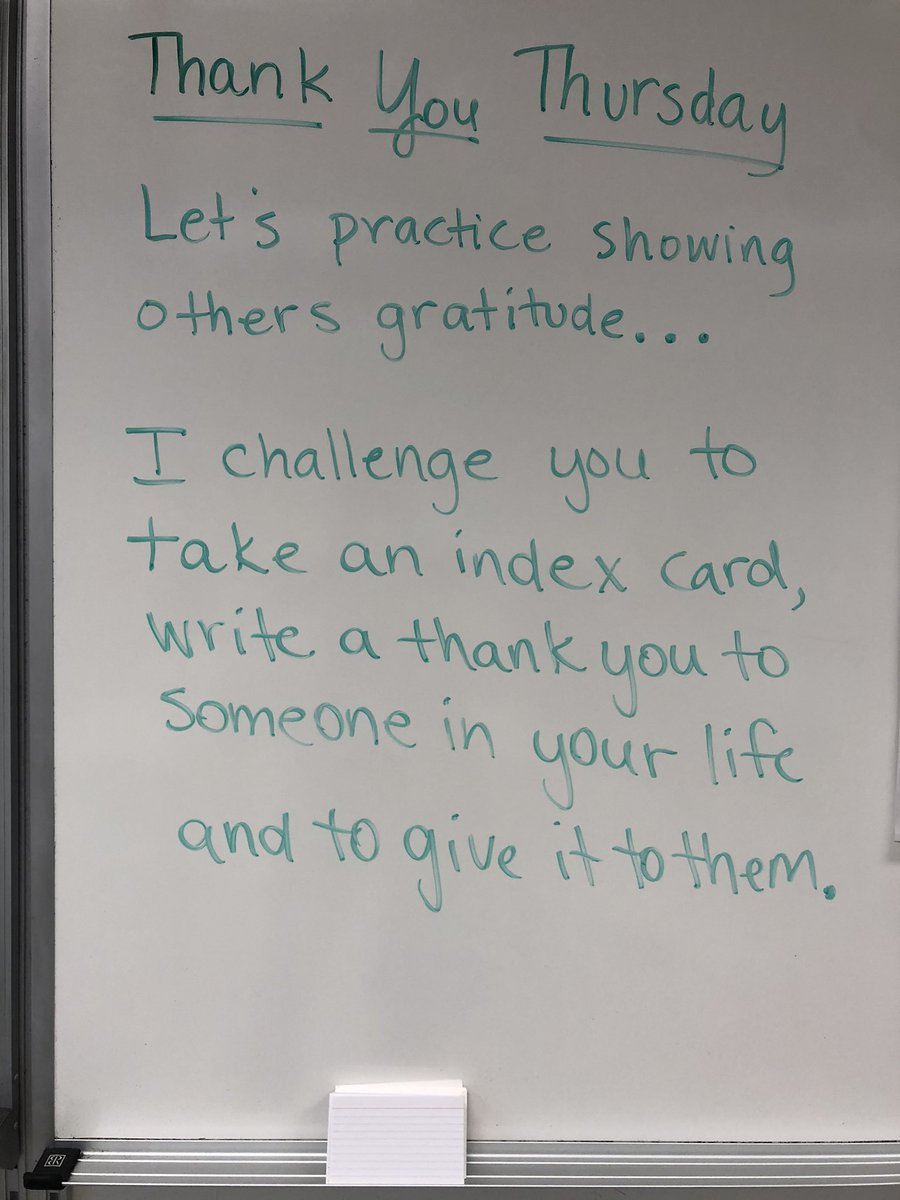 Thank You Thursday
Let's practice showing
others gratitude...
I challenge you to
take an index card,
write a thank you to
someone in your life
and to give it to them.